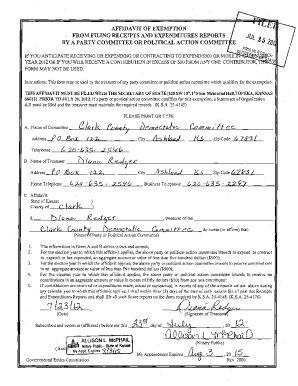 AFFIDAVIT OF EXEMPTION
FROM FILING RECEIPTS AND EXPENDITURES REPORTS
BY A PARTY COMMITTEE OR POLITICAL ACTION COMMITTEE
FILED
IF YOU ANTICIPATE RECEIVING OR EXPENDING OR CONTRACTING TO EXPEND $500 OR MORE IN CALENDAR
YEAR 2012 OR IF YOU WILL RECEIVE A CONTRIBUTION IN EXCESS OF $50 FROM ANY ONE CONTRIBUTOR, THIS
FORM MAY NOT BE USED.
Instructions: This form may be used by the treasurer of any party committee or political action committee which qualifies for the exemption.
THIS AFFIDAVIT MUST BE FILED WITH THE SECRETARY OF STATE (120 SW 10th, 1st Floor Memorial Hall, TOPEKA, KANSAS
66612) PRIOR TO JULY 30, 2012. If party or political action committee qualifies for this exemption, a Statement of Organization
still must be filed and the treasurer must maintain the required records. (K.S.A. 25-4145)
PLEASE PRINT OR TYPE
A. Name of Committee Clark County Democratic Committee
Address PO Box 122 City Ashland KS Zip Code 67831
Telephone 620-635-2546
B. Name of Treasurer Diana Redger
Address PO Box 122 City Ashland KS Zip Code 67831
Home Telephone 620-635-2546 Business Telephone 620-635-2287
C. Affidavit
State of Kansas
County of Clark
I, Diana Redger, treasurer of the
Clark County Democratic Committee, do swear (or affirm) that:
(Name of Party or Political Action Committee)
1. The information in Items A and B above is true and correct;
2. For the election year to which this affidavit applies, the above party or political action committee intends to expend, to contract
to expend, or has expended, an aggregate amount or value of less than five hundred dollars ($500);
3. For the election year to which this affidavit applies, the above party or political action committee intends to receive contributions
in an aggregate amount or value of less than five hundred dollars ($500);
4. For the election year to which this affidavit applies, the above party or political action committee intends to receive no
contributions in an aggregate amount or value in excess of fifty dollars ($50) from any one contributor;
7/23/12
(Date)
Diana Redger
(Signature of Treasurer)
Subscribed and sworn to (affirmed) before me this 23rd day of July, 20 12
ALLISON L. McPHAIL
Notary Public - State of Kansas
My Appt. Expires 8/3/15
Allison L McPhail
(Notary Public)
My Appointment Expires Aug 3, 20 15
Governmental Ethics Commission